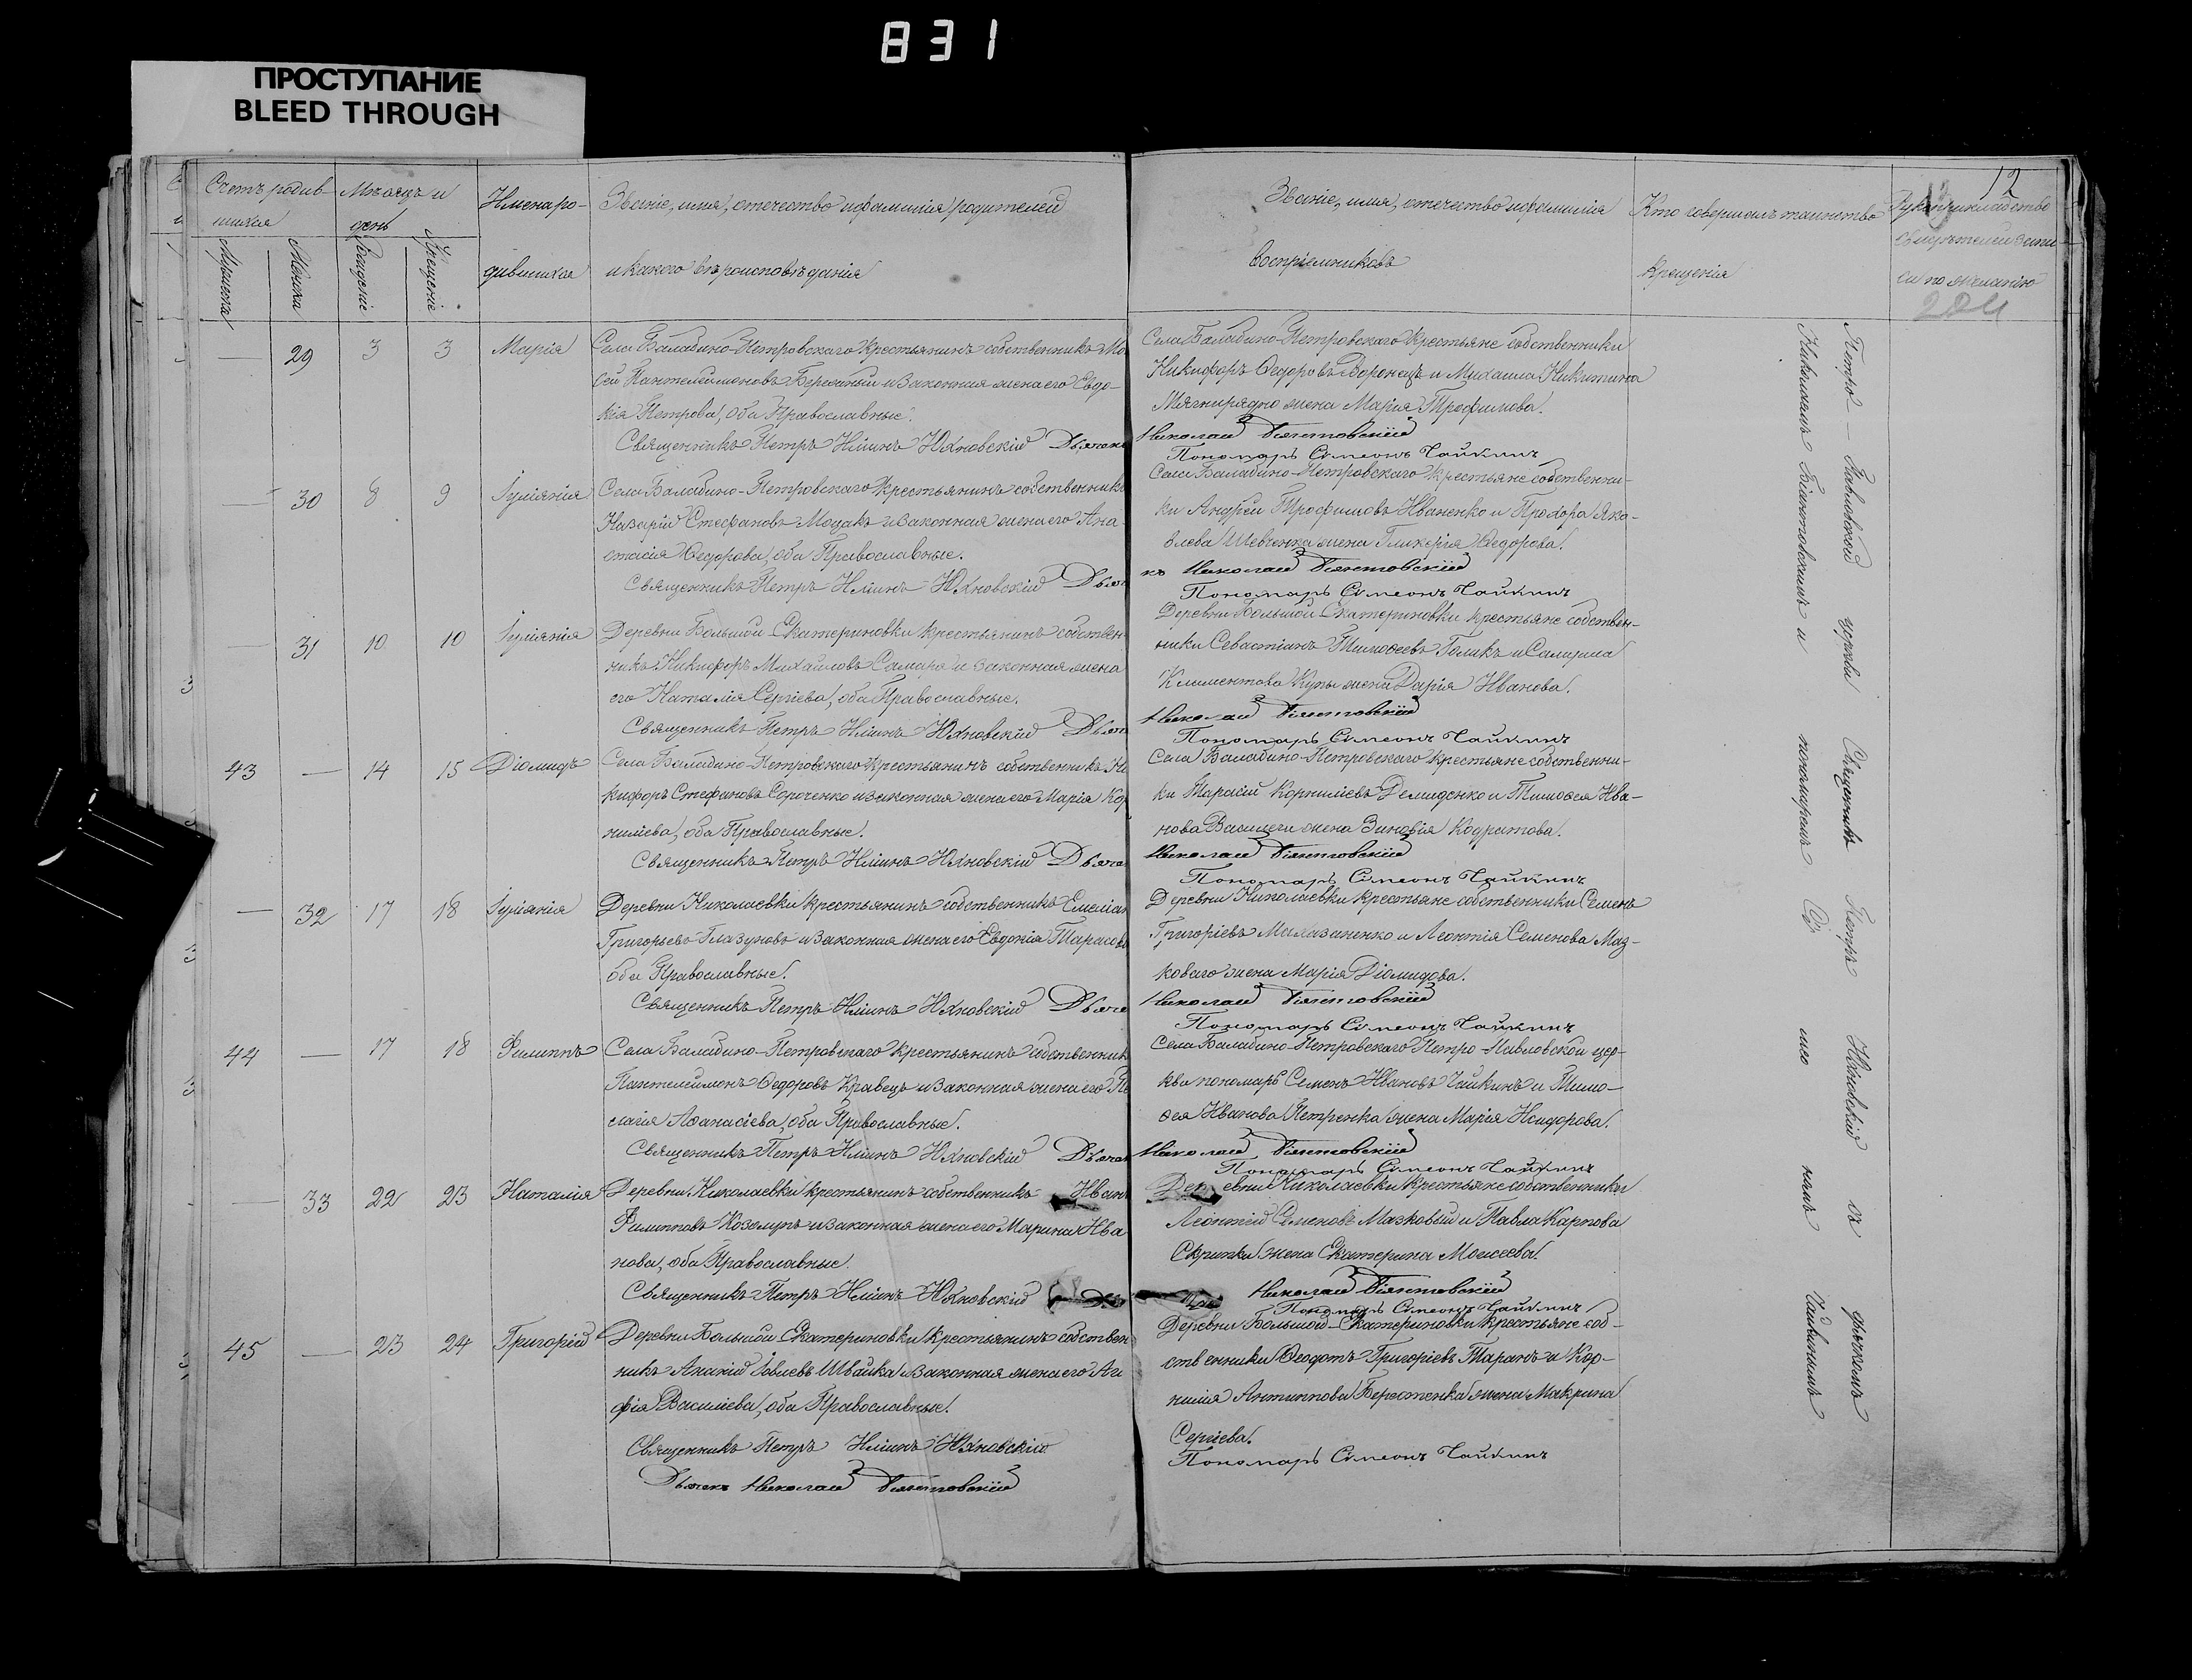 831
ПРОСТУПАНИЕ
BLEED THROUGH
12
Счетъ родив-
шихся
Мѣсяцъ и
день
Имена ро-
дившихся
Званіе, имя, отечество и фамилія родителей
и какого вѣроисповѣданія
Званіе, имя, отечество и фамилія
воспріемниковъ
Кто совершалъ таинство
крещенія
Рукоприкладство
свидѣтелей запи-
си по желанію
204
Мужска
Женска
Рожденіе
Крещеніе
— 29 3 3 Марія
Села Балабино-Петровскаго крестьянинъ собственникъ Мо
сей Пантелеймоновъ и законная жена его Евдо-
кія Петрова, оба Православные.
Священникъ Петръ Юхновскій Дьячекъ
Села Балабино-Петровскаго крестьяне собственники
Никифоръ Ѳедоровъ Воронецъ и Михаила Никитина
жена Марія Трофимова.
Николай Біянтовскій
Пономарь Симеонъ Чайкинъ
— 30 8 9 Іуліянія
Села Балабино-Петровскаго крестьянинъ собственникъ
Назарій Стефановъ Моцакъ и законная жена его Ана
стасія Ѳедорова, оба Православные.
Священникъ Петръ Юхновскій Дьяч
Села Балабино-Петровскаго крестьяне собственни-
ки Андрей Трофимовъ Иваненко и Прохора Яко-
влева Шевченка жена Гликерія Ѳедорова.
къ Николай Біянтовскій
Пономарь Симеонъ Чайкинъ
— 31 10 10 Іуліянія
Деревни Большой Екатериновки крестьянинъ собствен
никъ Никифоръ Михайловъ Самара и законная жена
его Наталія Сергіева, оба Православные.
Священникъ Петръ Юхновскій Дьяч
Деревни Большой Екатериновки крестьяне собствен-
ники Севастіанъ Тимоѳеевъ Голикъ и
Климентова жена Дарія Иванова.
Николай Біянтовскій
Пономарь Симеонъ Чайкинъ
43 — 14 15 Діомидъ
Села Балабино-Петровскаго крестьянинъ собственникъ Ни
кифоръ Стефановъ Сороченко и законная жена его Марія Кор
ниліева, оба Православные.
Священникъ Петръ Юхновскій Дьяче
Села Балабино-Петровскаго крестьяне собственни-
ки Тарасій Корниліевъ Демиденко и Тимоѳея Ива-
нова жена Зиновія Кодратова.
Николай Біянтовскій
Пономарь Симеонъ Чайкинъ
— 32 17 18 Іуліянія
Деревни Николаевки крестьянинъ собственникъ Емеліан
Григорьевъ Глазуновъ и законная жена его Евдокія Тарасова
оба Православные.
Священникъ Петръ Юхновскій Дьяче
Деревни Николаевки крестьяне собственники Семенъ
Григоріевъ и Леонтія Семенова Маз-
коваго жена Марія Діомидова.
Николай Біянтовскій
Пономарь Симеонъ Чайкинъ
44 — 17 18 Филиппъ
Села Балабино-Петровскаго крестьянинъ собственник
Пантелеймонъ Ѳедоровъ Кравецъ и законная жена его Пе
лагія Аѳанасіева, оба Православные.
Священникъ Петръ Юхновскій Дьячек
Села Балабино-Петровскаго Петро-Павловской цер-
кви пономарь Семенъ Ивановъ Чайкинъ и Тимо-
ѳея Иванова Петренка жена Марія Исидорова.
Николай Біянтовскій
Пономарь Симеонъ Чайкинъ
— 33 22 23 Наталія
Деревни Николаевки крестьянинъ собственникъ Иван
Филипповъ и законная жена его Марина Ива
нова, оба Православные.
Священникъ Петръ Юхновскій
Деревни Николаевки крестьяне собственники
Леонтій Семеновъ Мазковый и Павла Карпова
Скрипки жена Екатерина Моисеева.
Николай Біянтовскій
Пономарь Симеонъ Чайкинъ
45 — 23 24 Григорій
Деревни Большой Екатериновки крестьянинъ собствен
никъ Ананій Іовлевъ Швайка и законная жена его Ага
фія Василіева, оба Православные.
Священникъ Петръ Юхновскій
Дьячекъ Николай Біянтовскій
Деревни Большой-Екатериновки крестьяне соб-
ственники Ѳеодотъ Григоріевъ Таранъ и Кор-
нилія Антиппова Берестенка жена Макрина
Сергіева.
Пономарь Симеонъ Чайкинъ
Петро-Павловской церкви Священникъ Петръ Юхновскій съ дьячкомъ
Николаемъ Біянтовскимъ и пономаремъ Симеономъ Чайкинымъ